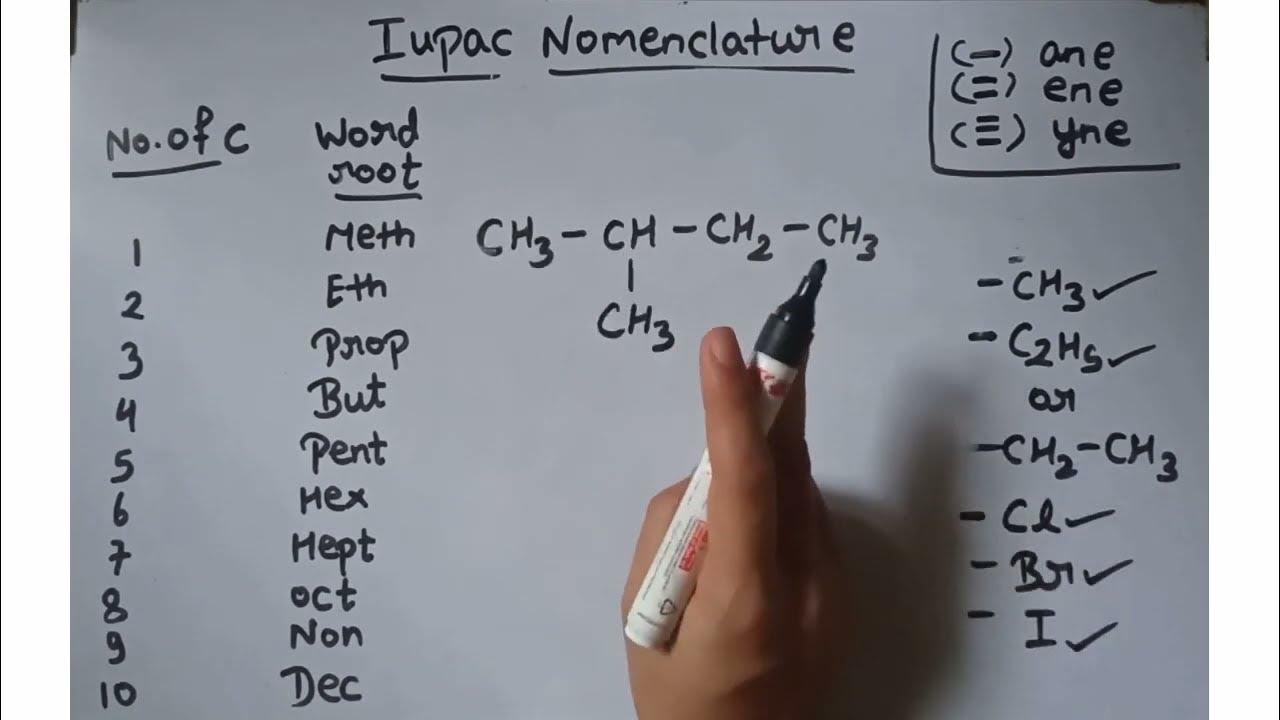 Iupac Nomenclature
(-) ane
(=) ene
(≡) yne
No. of C Word root
1 Meth
2 Eth
3 Prop
4 But
5 Pent
6 Hex
7 Hept
8 oct
9 Non
10 Dec
CH3 - CH - CH2 - CH3
|
CH3
- CH3 ✓
- C2H5 ✓
or
- CH2 - CH3
- Cl ✓
- Br ✓
- I ✓